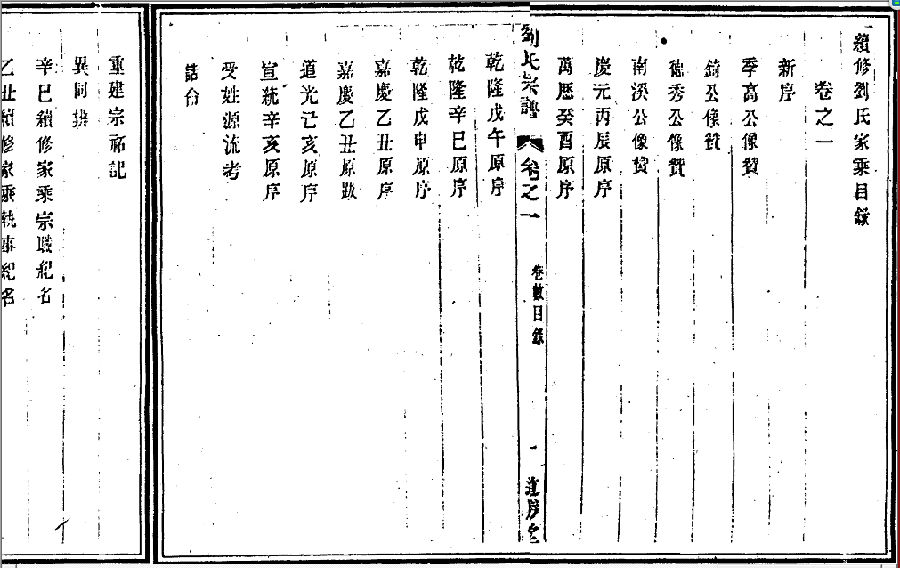 續修劉氏家乘目錄
卷之一
新序
季高公像贊
錡公像贊
德秀公像贊
南溪公像贊
慶元丙辰原序
萬歷癸酉原序
劉氏宗譜
卷之一
卷數目錄
一
乾隆戊午原序
乾隆辛巳原序
乾隆戊申原序
嘉慶乙丑原序
嘉慶乙丑原跋
道光己亥原序
宣統辛亥原序
受姓源流考
誥命
重建宗祠記
異同辨
辛巳續修家乘宗職紀名
乙丑續修家乘執事紀名